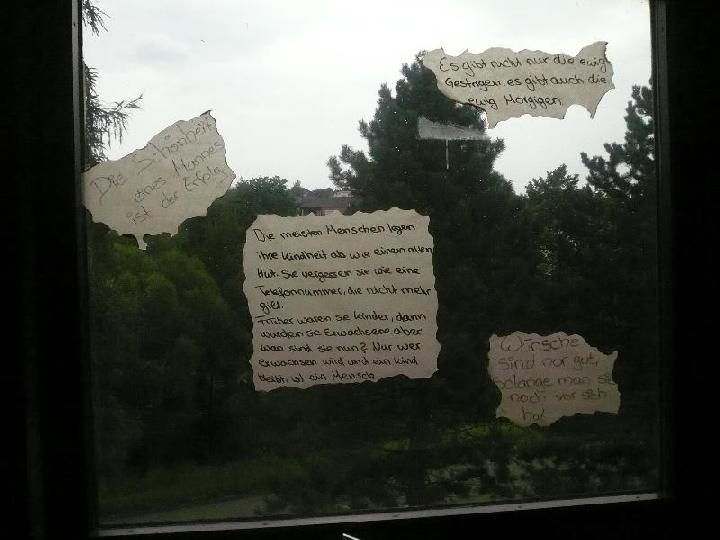 Es gibt nicht nur die ewig
Gestrigen, es gibt auch die
ewig Morgigen
Die Schönheit
eines Mannes
ist der Erfolg
Die meisten Menschen legen
ihre Kindheit ab wie einen alten
Hut. Sie vergessen sie wie eine
Telefonnummer, die nicht mehr
gilt.
Früher waren sie Kinder, dann
wurden sie Erwachsene aber
was sind sie nun? Nur wer
erwachsen wird und ein Kind
bleibt, ist ein Mensch
Wünsche
sind nur gut,
solange man sie
noch vor sich
hat